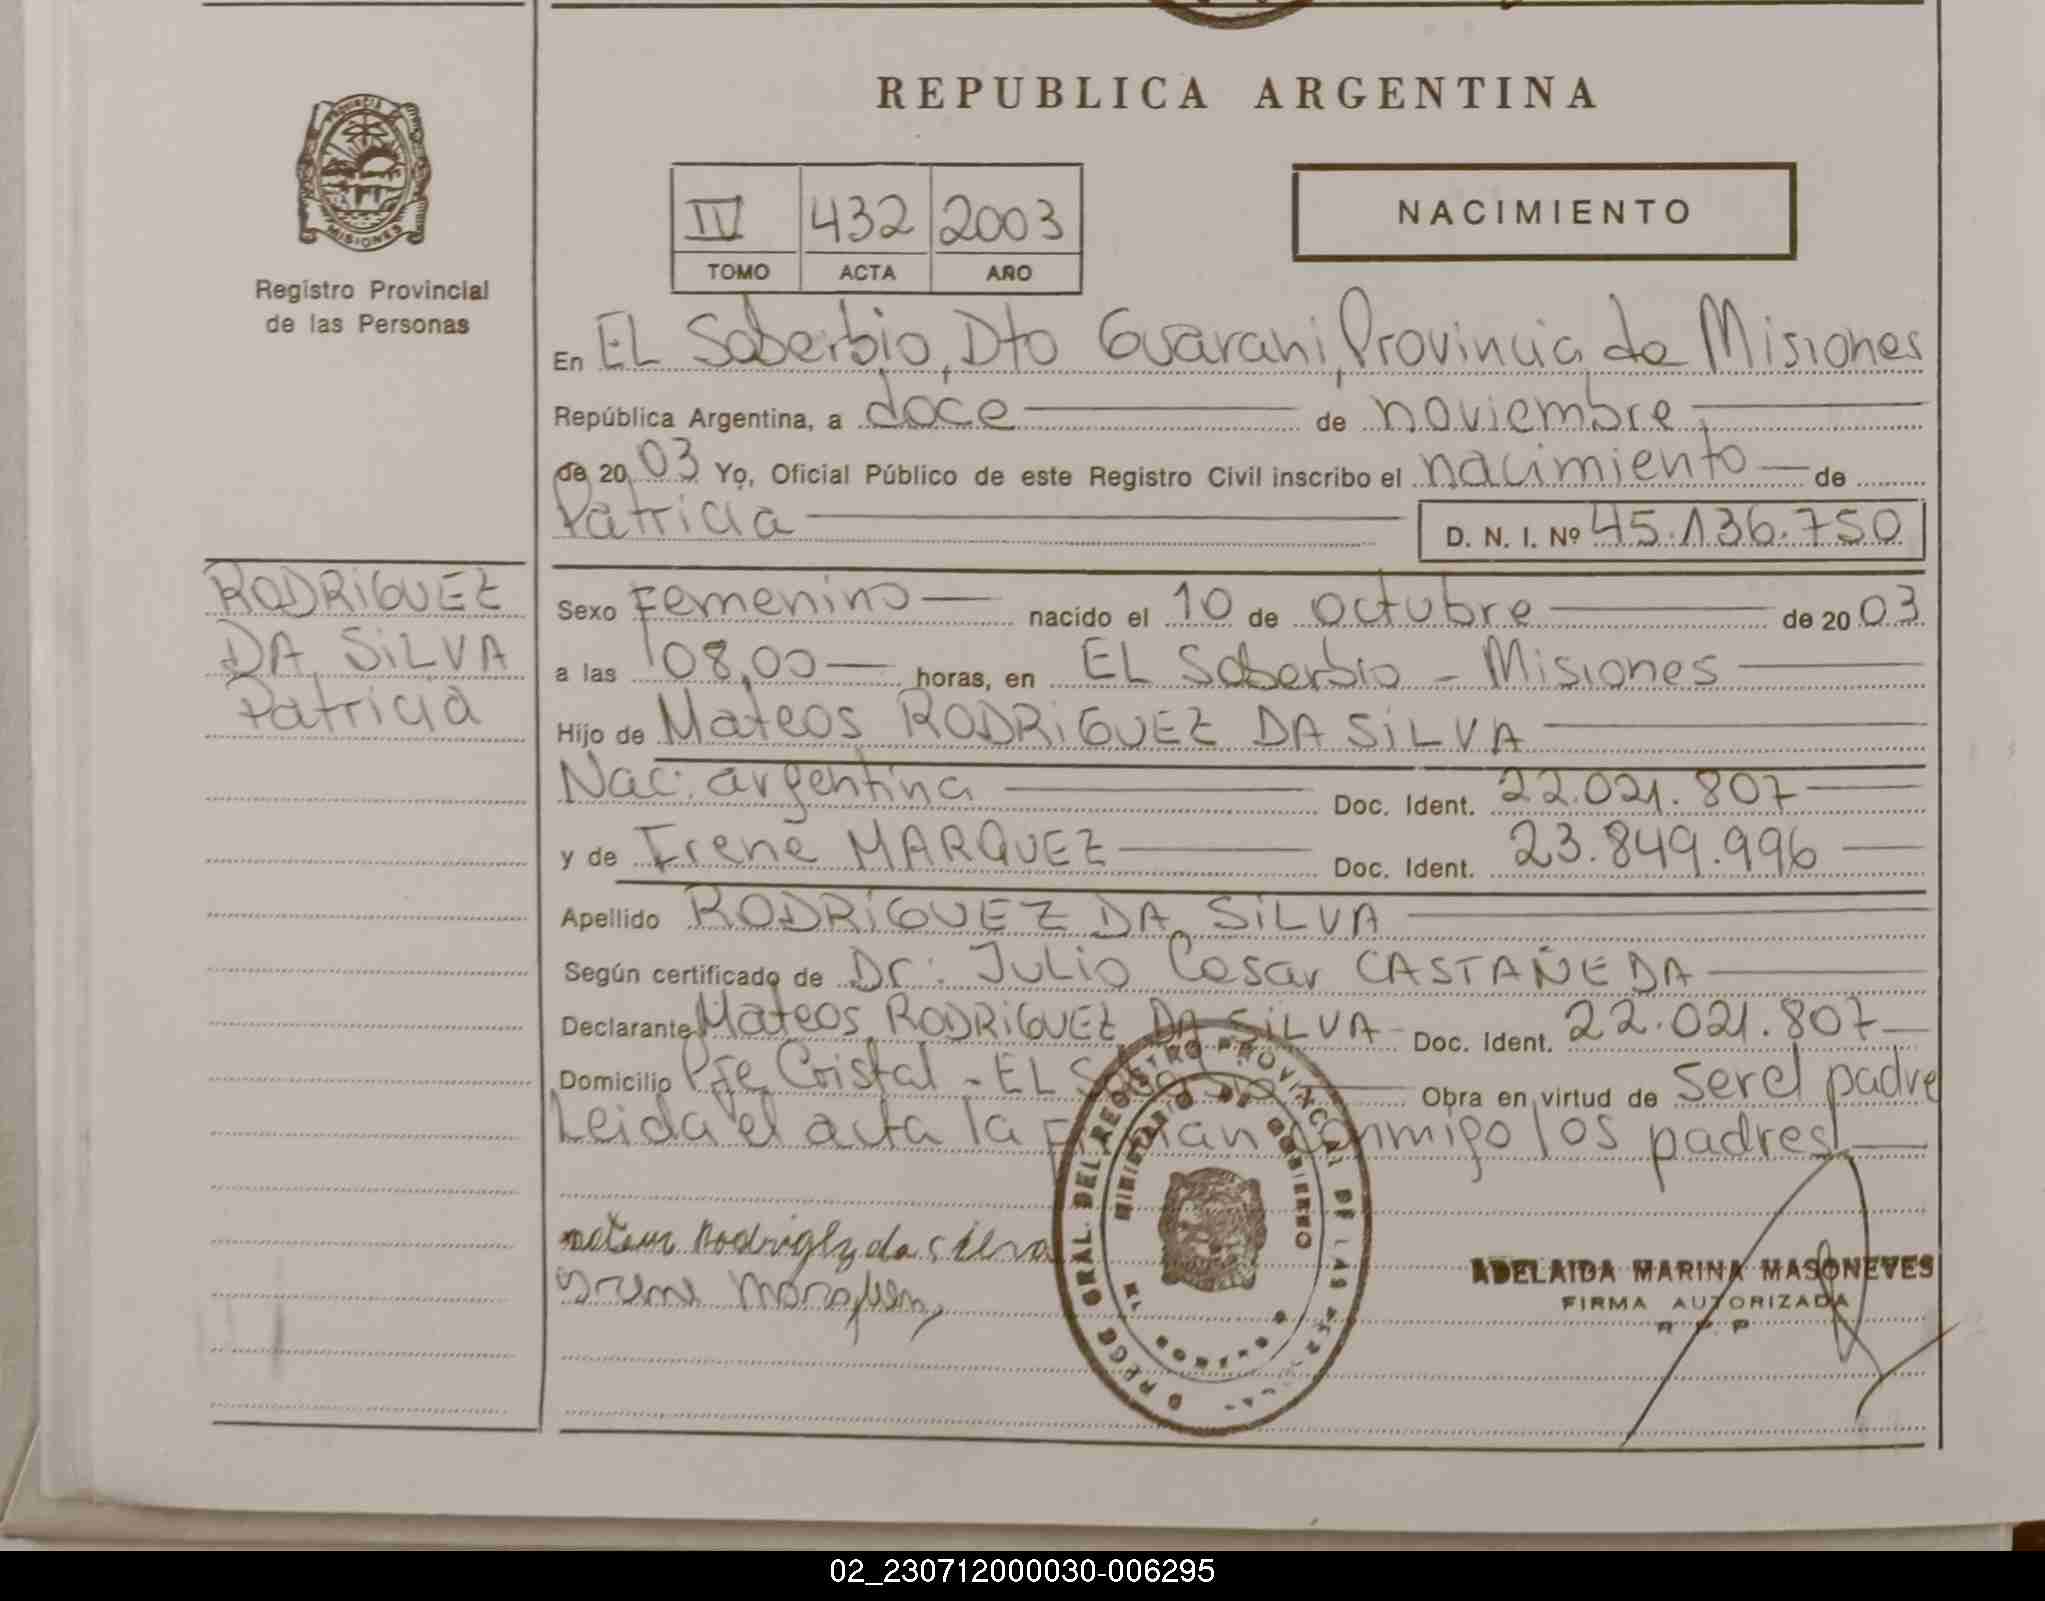 REPUBLICA ARGENTINA
PROVINCIA
MISIONES
Registro Provincial
de las Personas
IV 432 2003
TOMO ACTA AÑO
NACIMIENTO
En EL Soberbio, Dto Guarani, Provincia de Misiones
República Argentina, a doce de noviembre
de 20 03 Yo, Oficial Público de este Registro Civil inscribo el nacimiento de
Patricia D. N. I. Nº 45.136.750
RODRiGUEZ
DA SiLVA
Patricia
Sexo Femenino nacido el 10 de octubre de 20 03
a las 08,00 horas, en EL Soberbio - Misiones
Hijo de Mateos RODRiGUEZ DA SiLVA
Nac: argentina Doc. Ident. 22.021.807
y de Irene MARQUEZ Doc. Ident. 23.849.996
Apellido RODRiGUEZ DA SiLVA
Según certificado de Dr: Julio Cesar CASTAÑEDA
Declarante Mateos RODRiGUEZ DA SiLVA Doc. Ident. 22.021.807
Domicilio Pje Cristal - EL Soberbio Obra en virtud de ser el padre
Leida el acta la firman conmigo los padres
Rodriguez da silva
ADELAIDA MARINA MASONEVES
FIRMA AUTORIZADA
R P P
GRAL. DEL REGISTRO PROVINCIAL DE LAS
MINISTERIO DE GOBIERNO
02_230712000030-006295